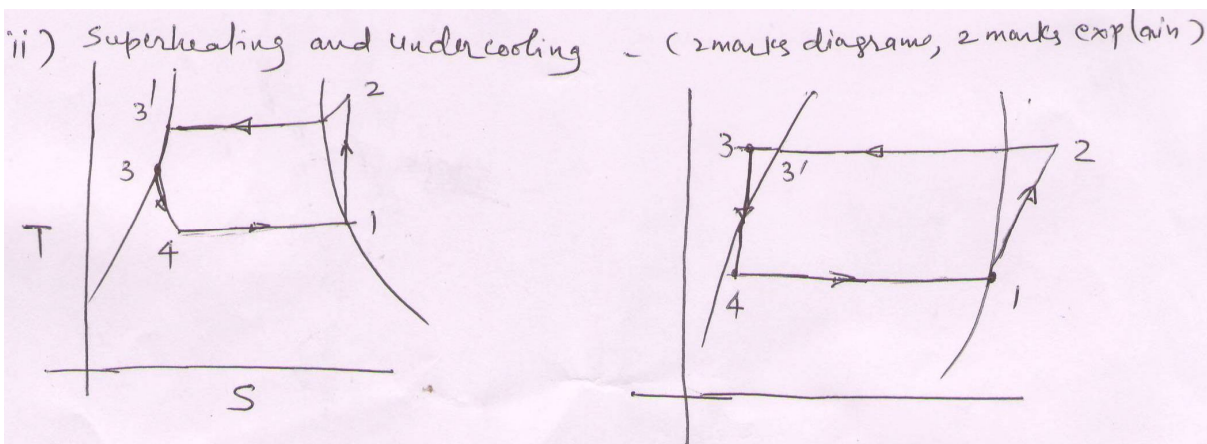 ii) Superheating and undercooling - (2 marks diagrams, 2 marks explain)
3'
2
3
T
4
1
S
3
3'
2
4
1